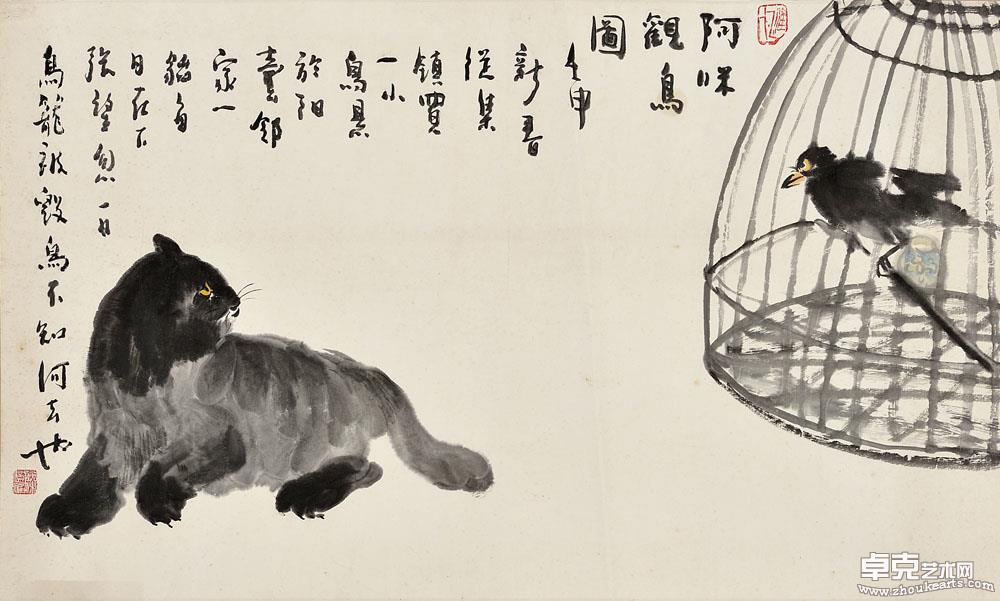 阿咪
觀鳥
圖
壬申
新春
從集
鎮買
一小
鳥悬
於阳
臺鄰
家一
貓每
日在下
張望忽一日
鳥籠被毀鳥不知何去也
卓克艺术网
www.zhoukearts.com